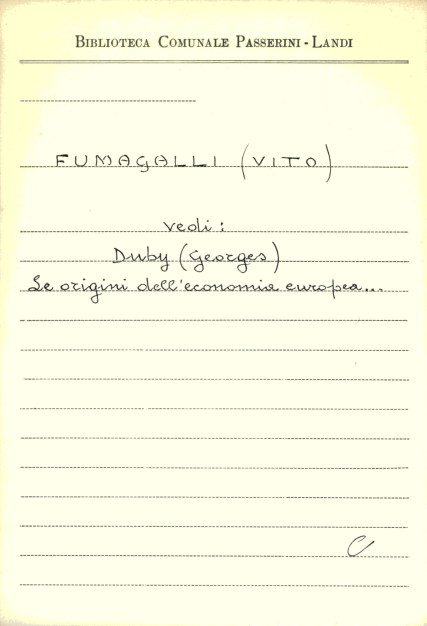 BIBLIOTECA COMUNALE PASSERINI - LANDI
FUMAGALLI (VITO)
vedi:
Duby (Georges)
Le origini dell'economia europea...
C